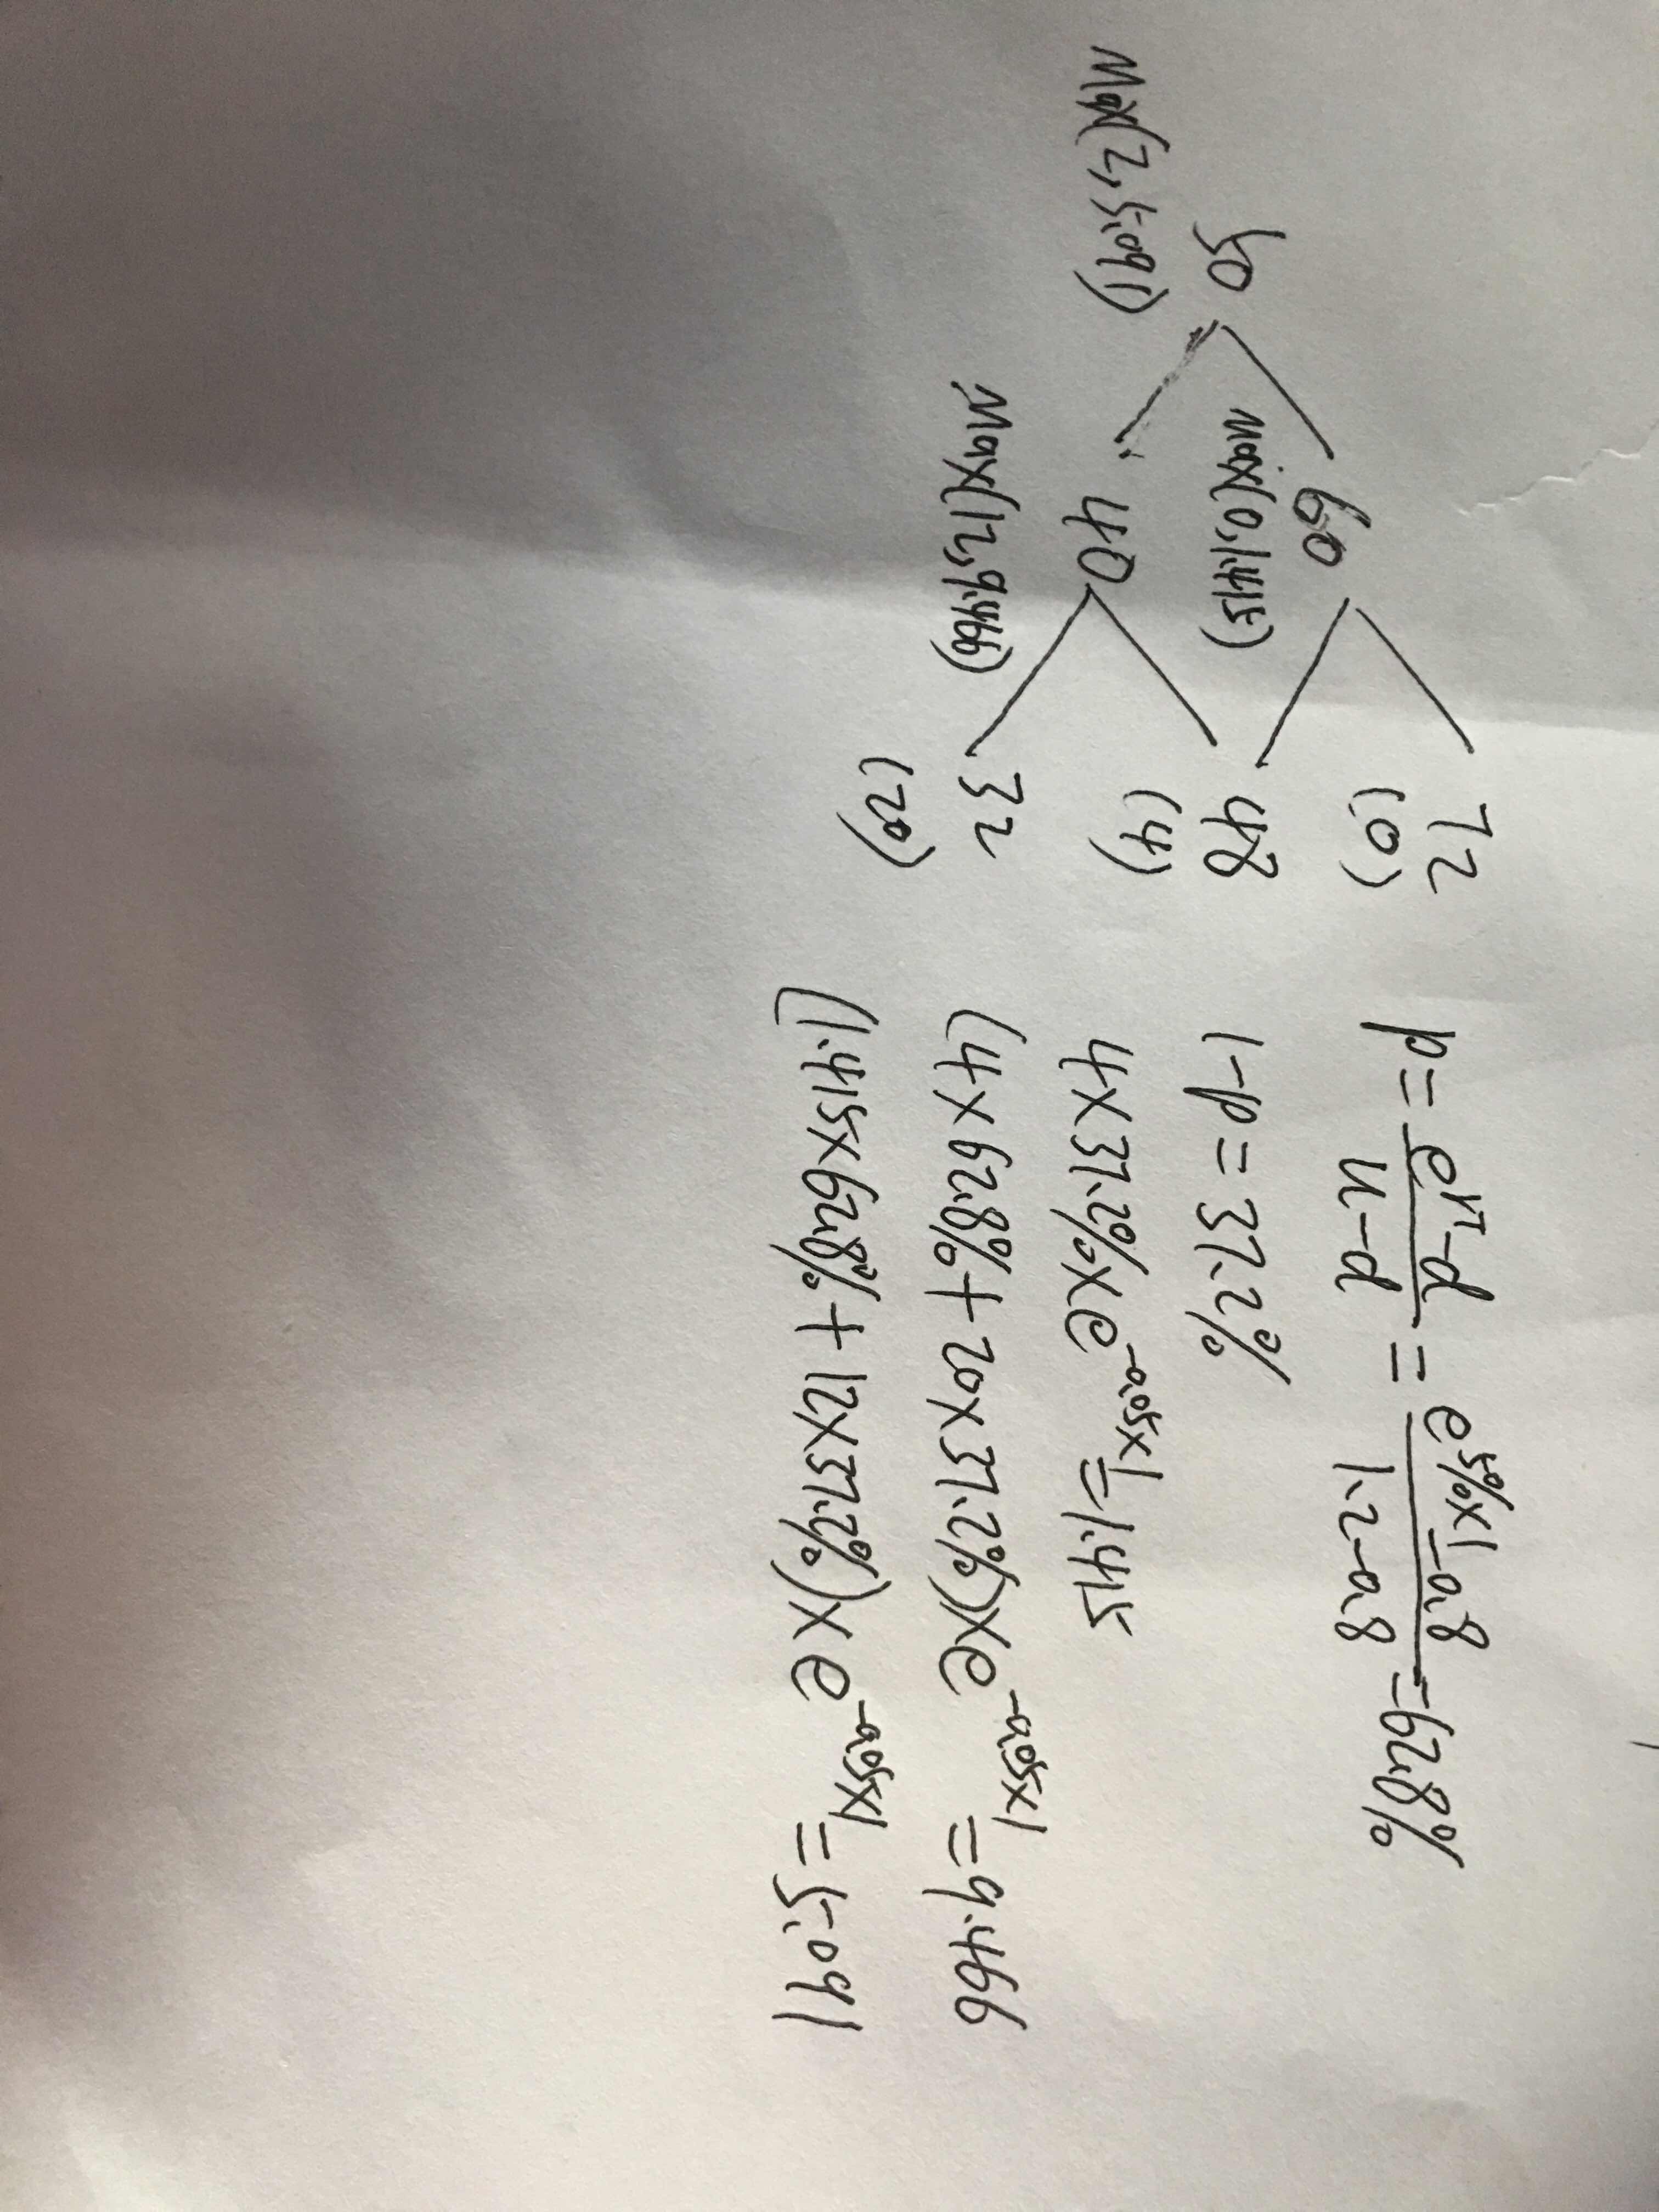 72
(0)
60
Max(0,1.415)
50
48
Max(2,5.091)
(4)
40
Max(12,9.466)
32
(20)
p = e^rT-d / u-d = e^5%×1-0.8 / 1.2-0.8 = 62.8%
1-p = 37.2%
4×37.2%×e^-0.05×1 = 1.415
(4×62.8%+20×37.2%)×e^-0.05×1 = 9.466
(1.415×62.8%+12×37.2%)×e^-0.05×1 = 5.091